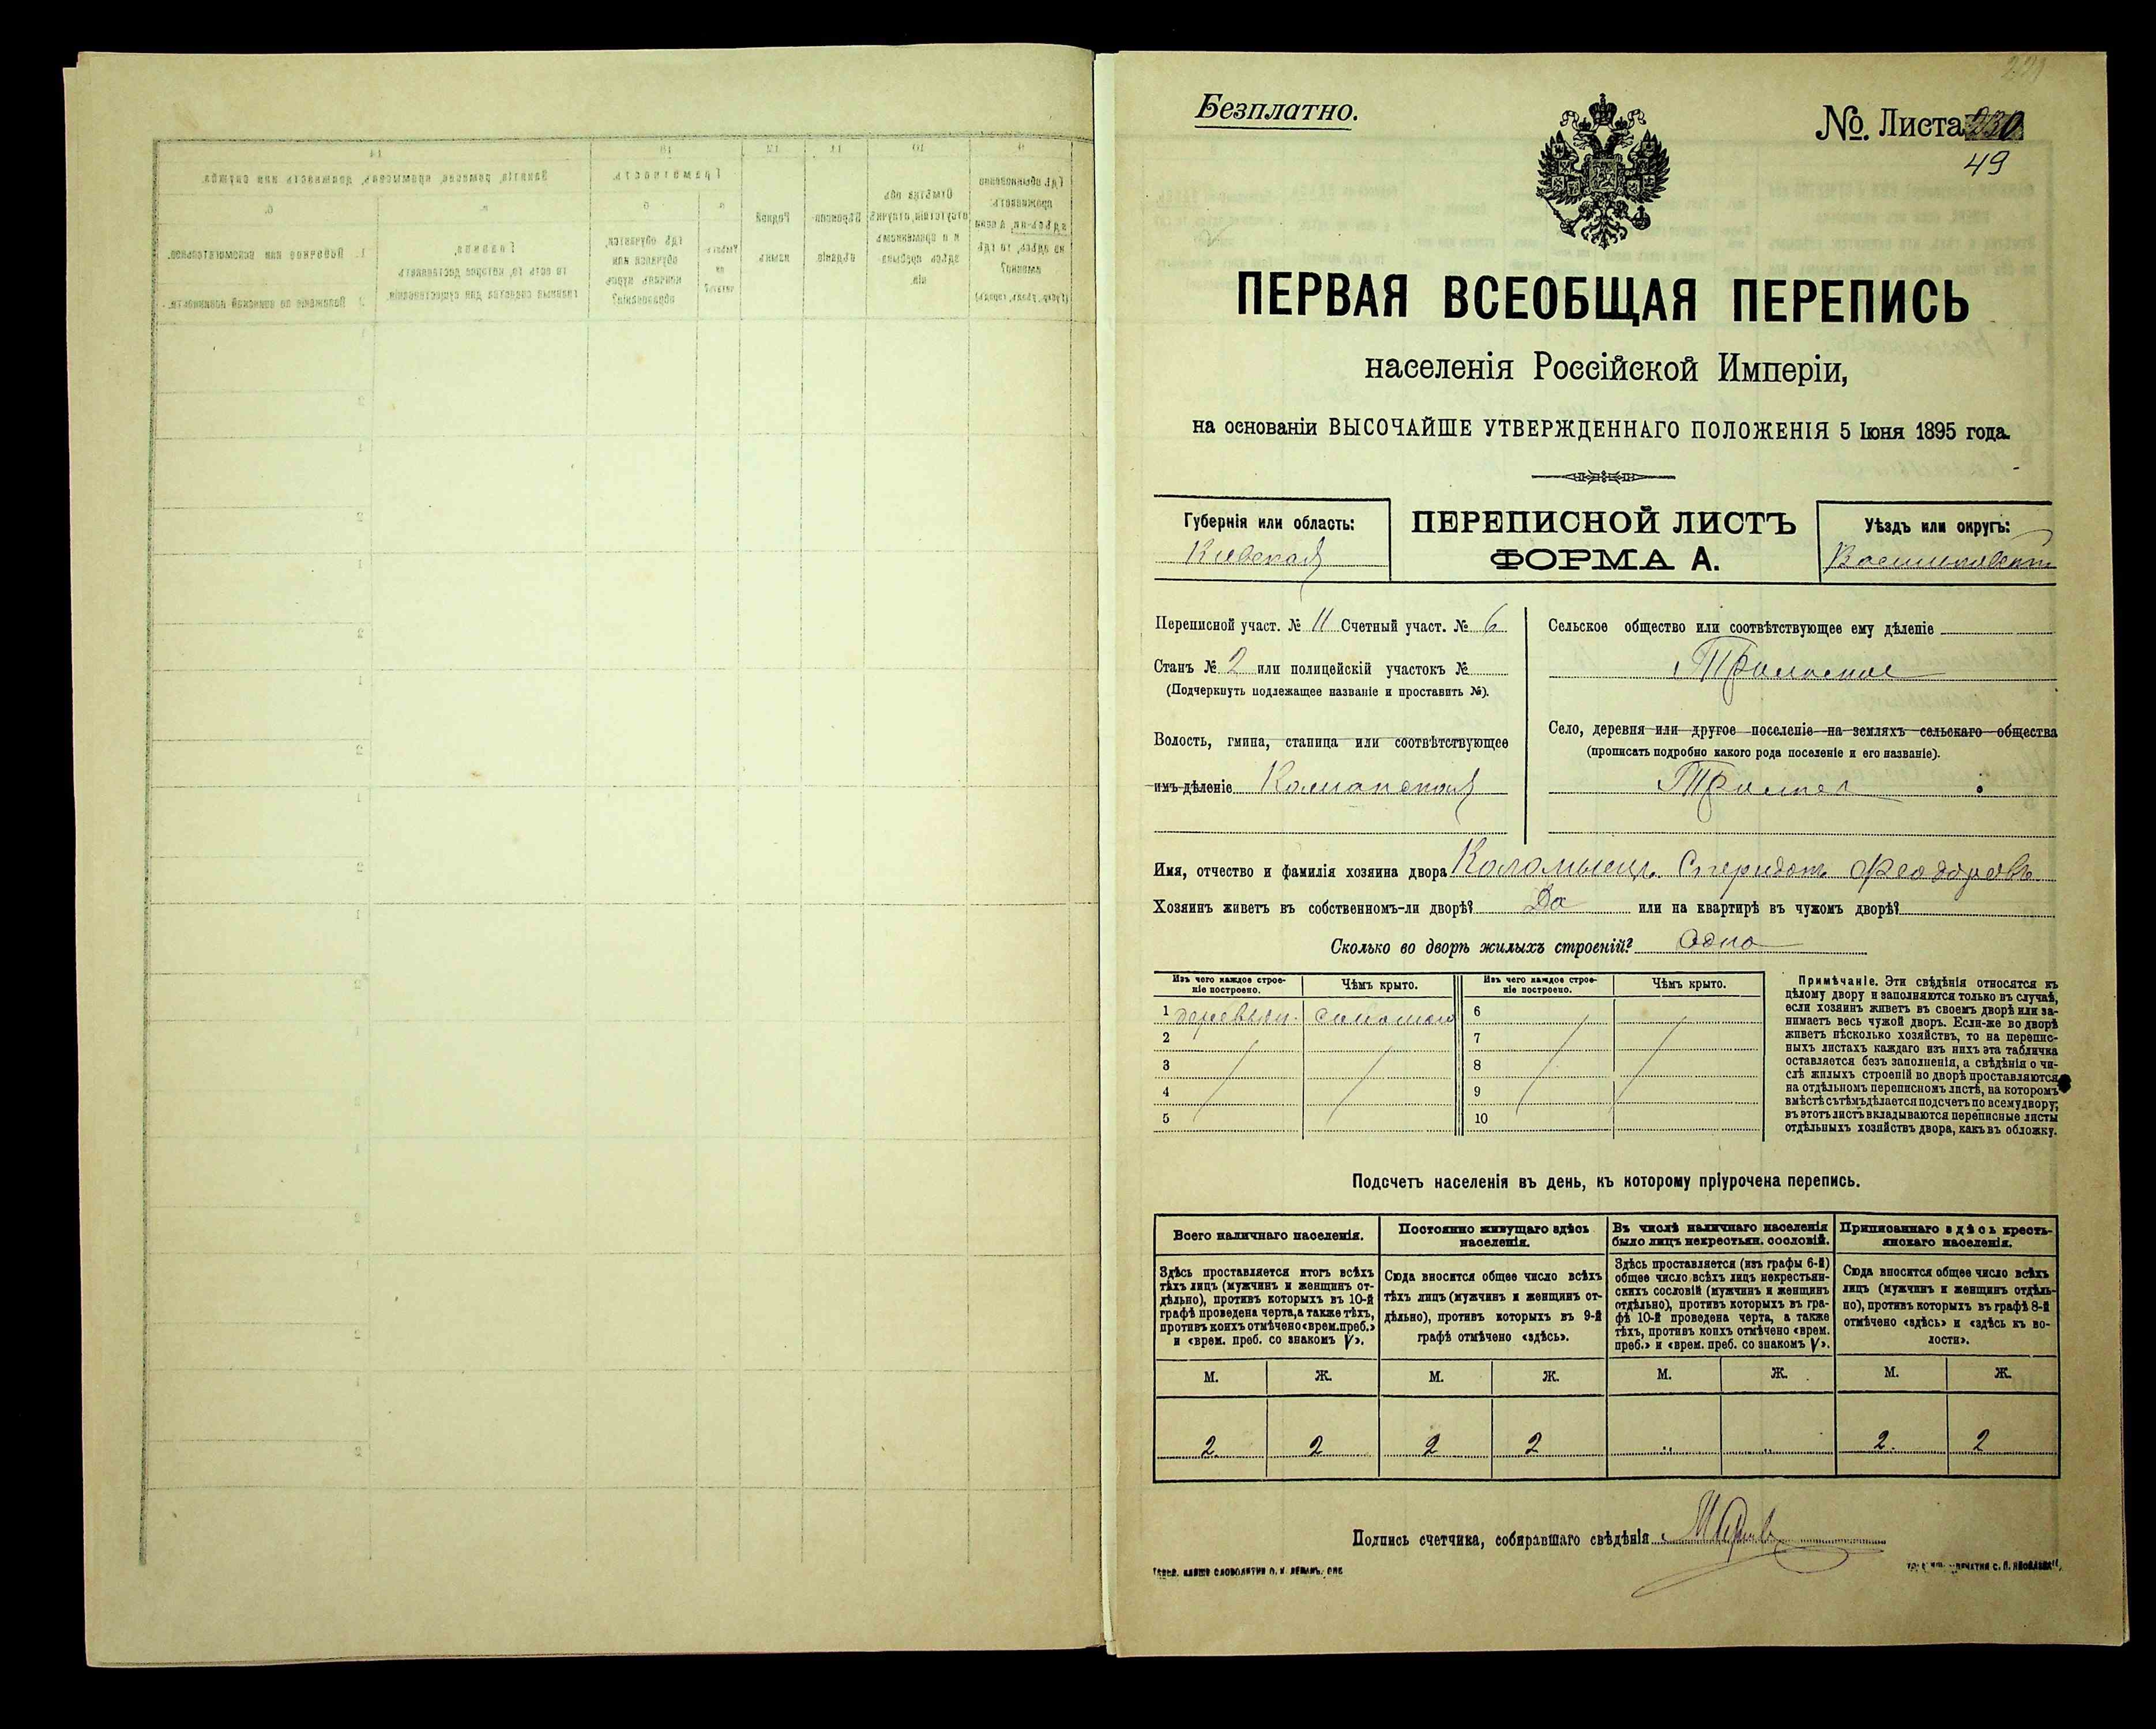 Безплатно.
№ Листа 230
49
ПЕРВАЯ ВСЕОБЩАЯ ПЕРЕПИСЬ
населенія Россійской Имперіи,
на основаніи ВЫСОЧАЙШЕ УТВЕРЖДЕННАГО ПОЛОЖЕНІЯ 5 Іюня 1895 года.
Губернія или область:
Кіевская
ПЕРЕПИСНОЙ ЛИСТЪ
ФОРМА А.
Уѣздъ или округъ:
Переписной участ. № 11 Счетный участ. № 6
Станъ № 2 или полицейскій участокъ №
(Подчеркнуть подлежащее названіе и проставить №).
Волость, гмина, станица или соотвѣтствующее
имъ дѣленіе
Сельское общество или соотвѣтствующее ему дѣленіе
Село, деревня или другое поселеніе на земляхъ сельскаго общества
(прописать подробно какого рода поселеніе и его названіе).
Имя, отчество и фамилія хозяина двора Коломыецъ Спиридонъ Феодоровъ
Хозяинъ живетъ въ собственномъ-ли дворѣ? Да или на квартирѣ въ чужомъ дворѣ?
Сколько во дворѣ жилыхъ строеній? Одно
Изъ чего каждое строе-
ніе построено.
Чѣмъ крыто.
Изъ чего каждое строе-
ніе построено.
Чѣмъ крыто.
1 деревян. соломою 6
2 7
3 8
4 9
5 10
Примѣчаніе. Эти свѣдѣнія относятся къ
цѣлому двору и заполняются только въ случаѣ,
если хозяинъ живетъ въ своемъ дворѣ или за-
нимаетъ весь чужой дворъ. Если-же во дворѣ
живетъ нѣсколько хозяйствъ, то на перепис-
ныхъ листахъ каждаго изъ нихъ эта табличка
оставляется безъ заполненія, а свѣдѣнія о чи-
слѣ жилыхъ строеній во дворѣ проставляются
на отдѣльномъ переписномъ листѣ, на которомъ
вмѣстѣ съ тѣмъ дѣлается подсчетъ по всему двору;
въ этотъ листъ вкладываются переписные листы
отдѣльныхъ хозяйствъ двора, какъ въ обложку.
Подсчетъ населенія въ день, къ которому пріурочена перепись.
Всего наличнаго населенія.
Здѣсь проставляется итогъ всѣхъ
тѣхъ лицъ (мужчинъ и женщинъ от-
дѣльно), противъ которыхъ въ 10-й
графѣ проведена черта, а также тѣхъ,
противъ коихъ отмѣчено «врем. преб.»
и «врем. преб. со знакомъ V».
Постоянно живущаго здѣсь
населенія.
Сюда вносится общее число всѣхъ
тѣхъ лицъ (мужчинъ и женщинъ от-
дѣльно), противъ которыхъ въ 9-й
графѣ отмѣчено «здѣсь».
Въ числѣ наличнаго населенія
было лицъ некрестьян. сословій.
Здѣсь проставляется (изъ графы 6-й)
общее число всѣхъ лицъ некрестьян-
скихъ сословій (мужчинъ и женщинъ
отдѣльно), противъ которыхъ въ гра-
фѣ 10-й проведена черта, а также
тѣхъ, противъ коихъ отмѣчено «врем.
преб.» и «врем. преб. со знакомъ V».
Приписаннаго здѣсь кресть-
янскаго населенія.
Сюда вносится общее число всѣхъ
лицъ (мужчинъ и женщинъ отдѣль-
но), противъ которыхъ въ графѣ 8-й
отмѣчено «здѣсь» и «здѣсь къ во-
лости».
М. Ж. М. Ж. М. Ж. М. Ж.
2 2 2 2 2 2
Подпись счетчика, собиравшаго свѣдѣнія